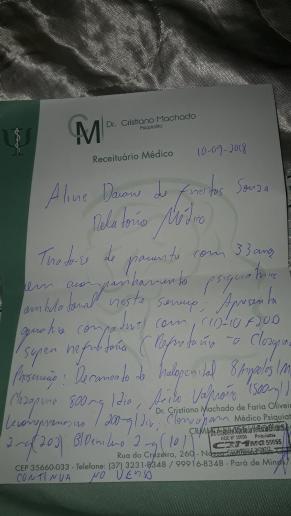 CM
Dr. Cristiano Machado
Psiquiatra
Receituário Médico
10-09-2018
Aline Daiane de Freitas Souza
Relatório Médico
Trata-se de paciente com 33 anos
em acompanhamento psiquiátrico
ambulatorial neste serviço. Apresenta
quadro compatível com CID-10 F20.0
super refratário (Refratário a Clozapina
Prescrição: Decanoato de haloperidol 8 Ampolas/m
800 mg/dia, Ácido Valpróico 1500 mg/d
Levomepromazina 200 mg/dia,
2 mg Biperideno 2 mg
Dr. Cristiano Machado de Faria Oliveira
Médico Psiquiatra
CRMMG
Rua do Cruzeiro, 260 - Nossa
CEP 35660-033 - Telefone: (37) 3231-8348 / 99916-8348 - Pará de Minas
CONTINUA NO VERSO